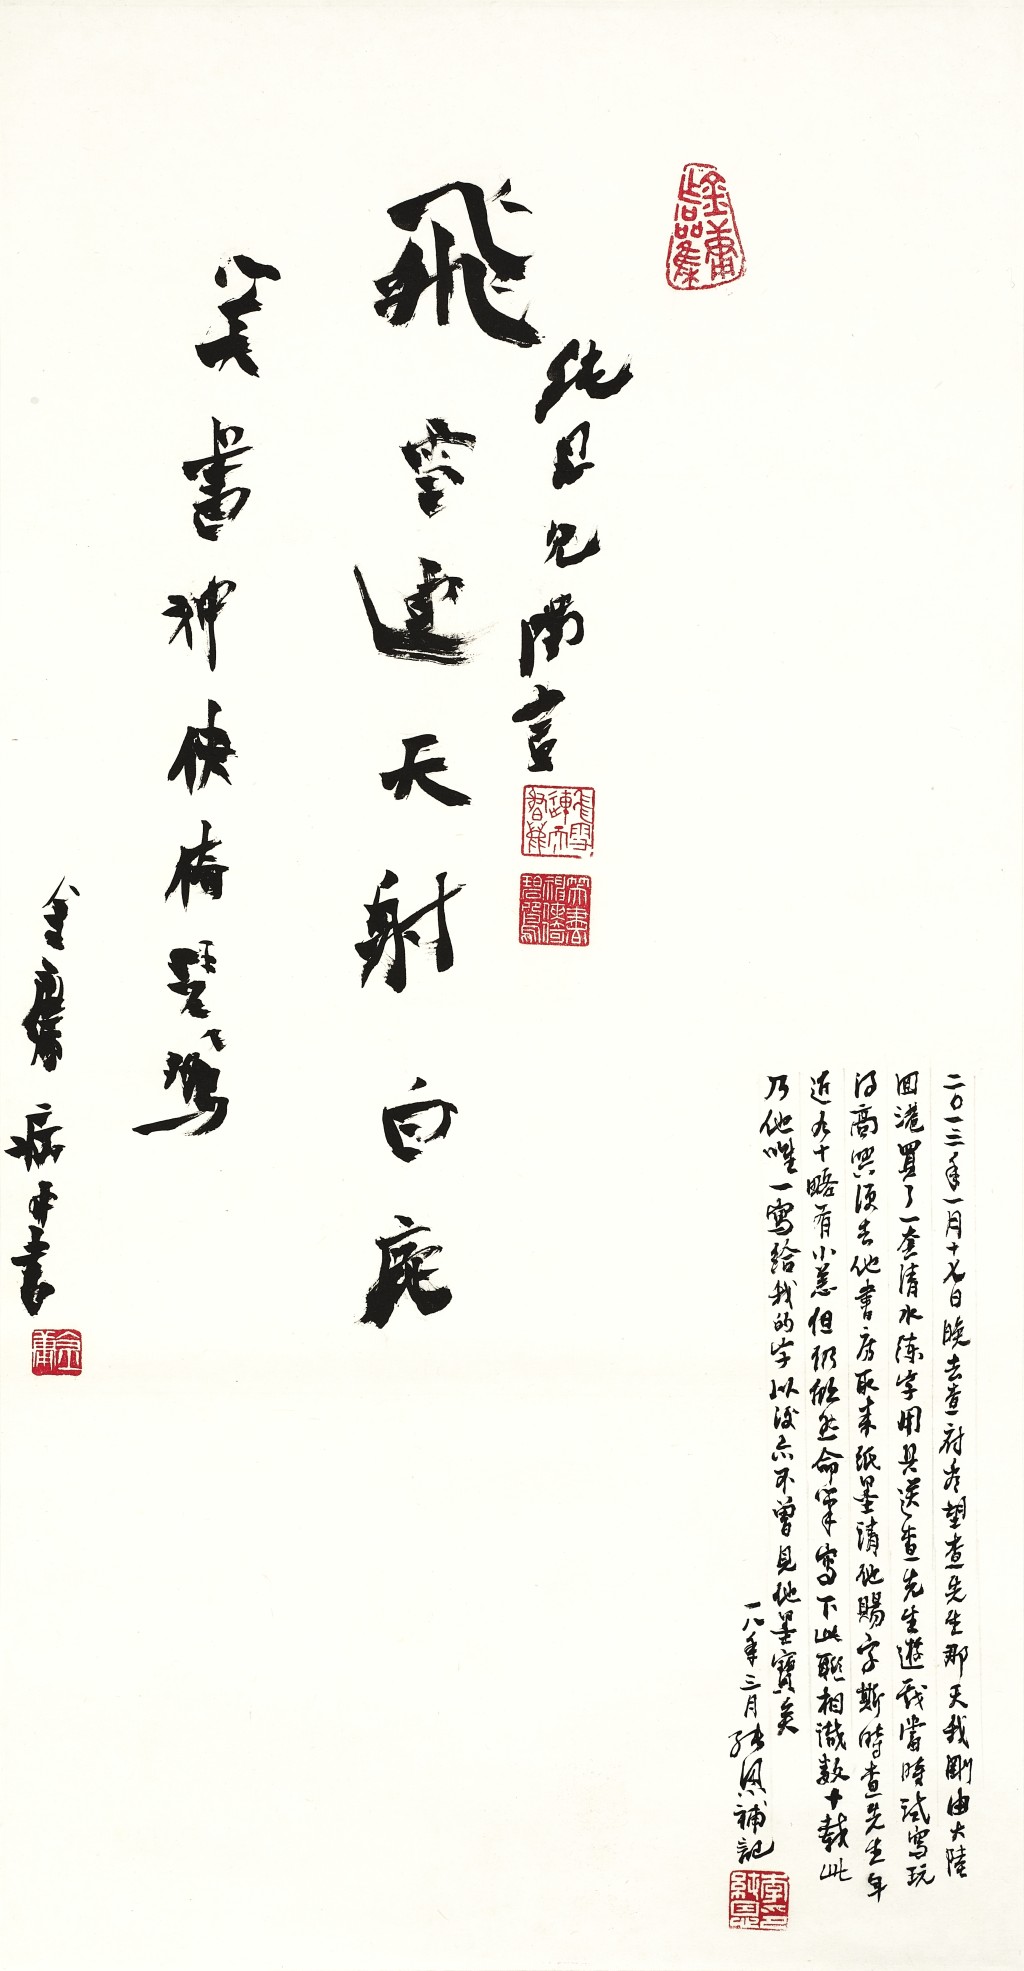 純恩兄兩言
飛雪連天射白鹿
笑書神俠倚碧鴛
金庸 病中書
二〇一三年一月十七日晚去查府看望查先生那天我剛由大陸
回港買了一套清水練字用具送查先生遊戲當時試寫玩
得高興便去他書房取來紙墨請他賜字斯時查先生年
近九十略有小恙但仍欣然命筆寫下此聯相識數十載此
乃他唯一寫給我的字以後亦不曾見他墨寶矣
一八年三月 純恩補記
飛雪連天射白鹿
笑書神俠倚碧鴛
金庸
李純恩印